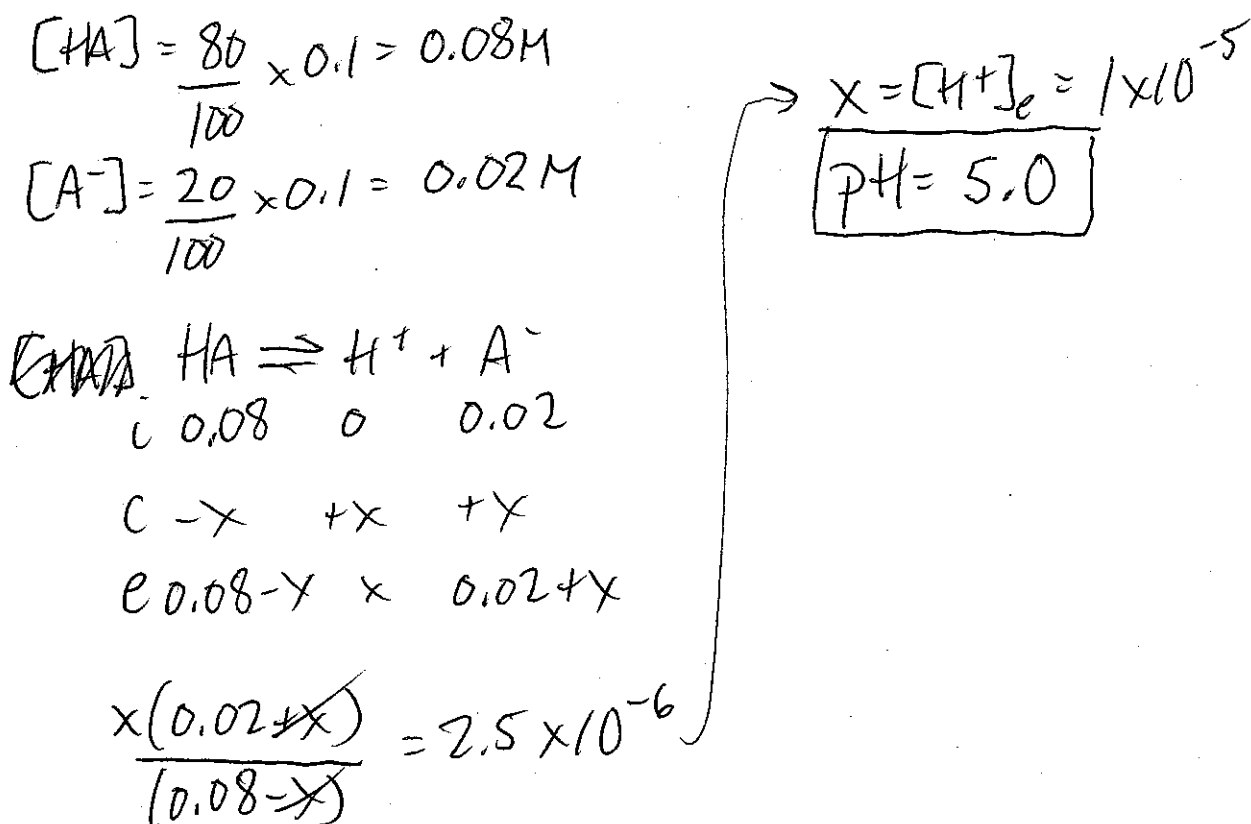 [HA] = 80/100 x 0.1 = 0.08M
[A⁻] = 20/100 x 0.1 = 0.02M
HA ⇌ H⁺ + A⁻
i 0.08 0 0.02
C -x +x +x
e 0.08-x x 0.02+x
x(0.02+x)/(0.08-x) = 2.5 x10⁻⁶
→ x = [H+]e = 1x10⁻⁵
pH = 5.0